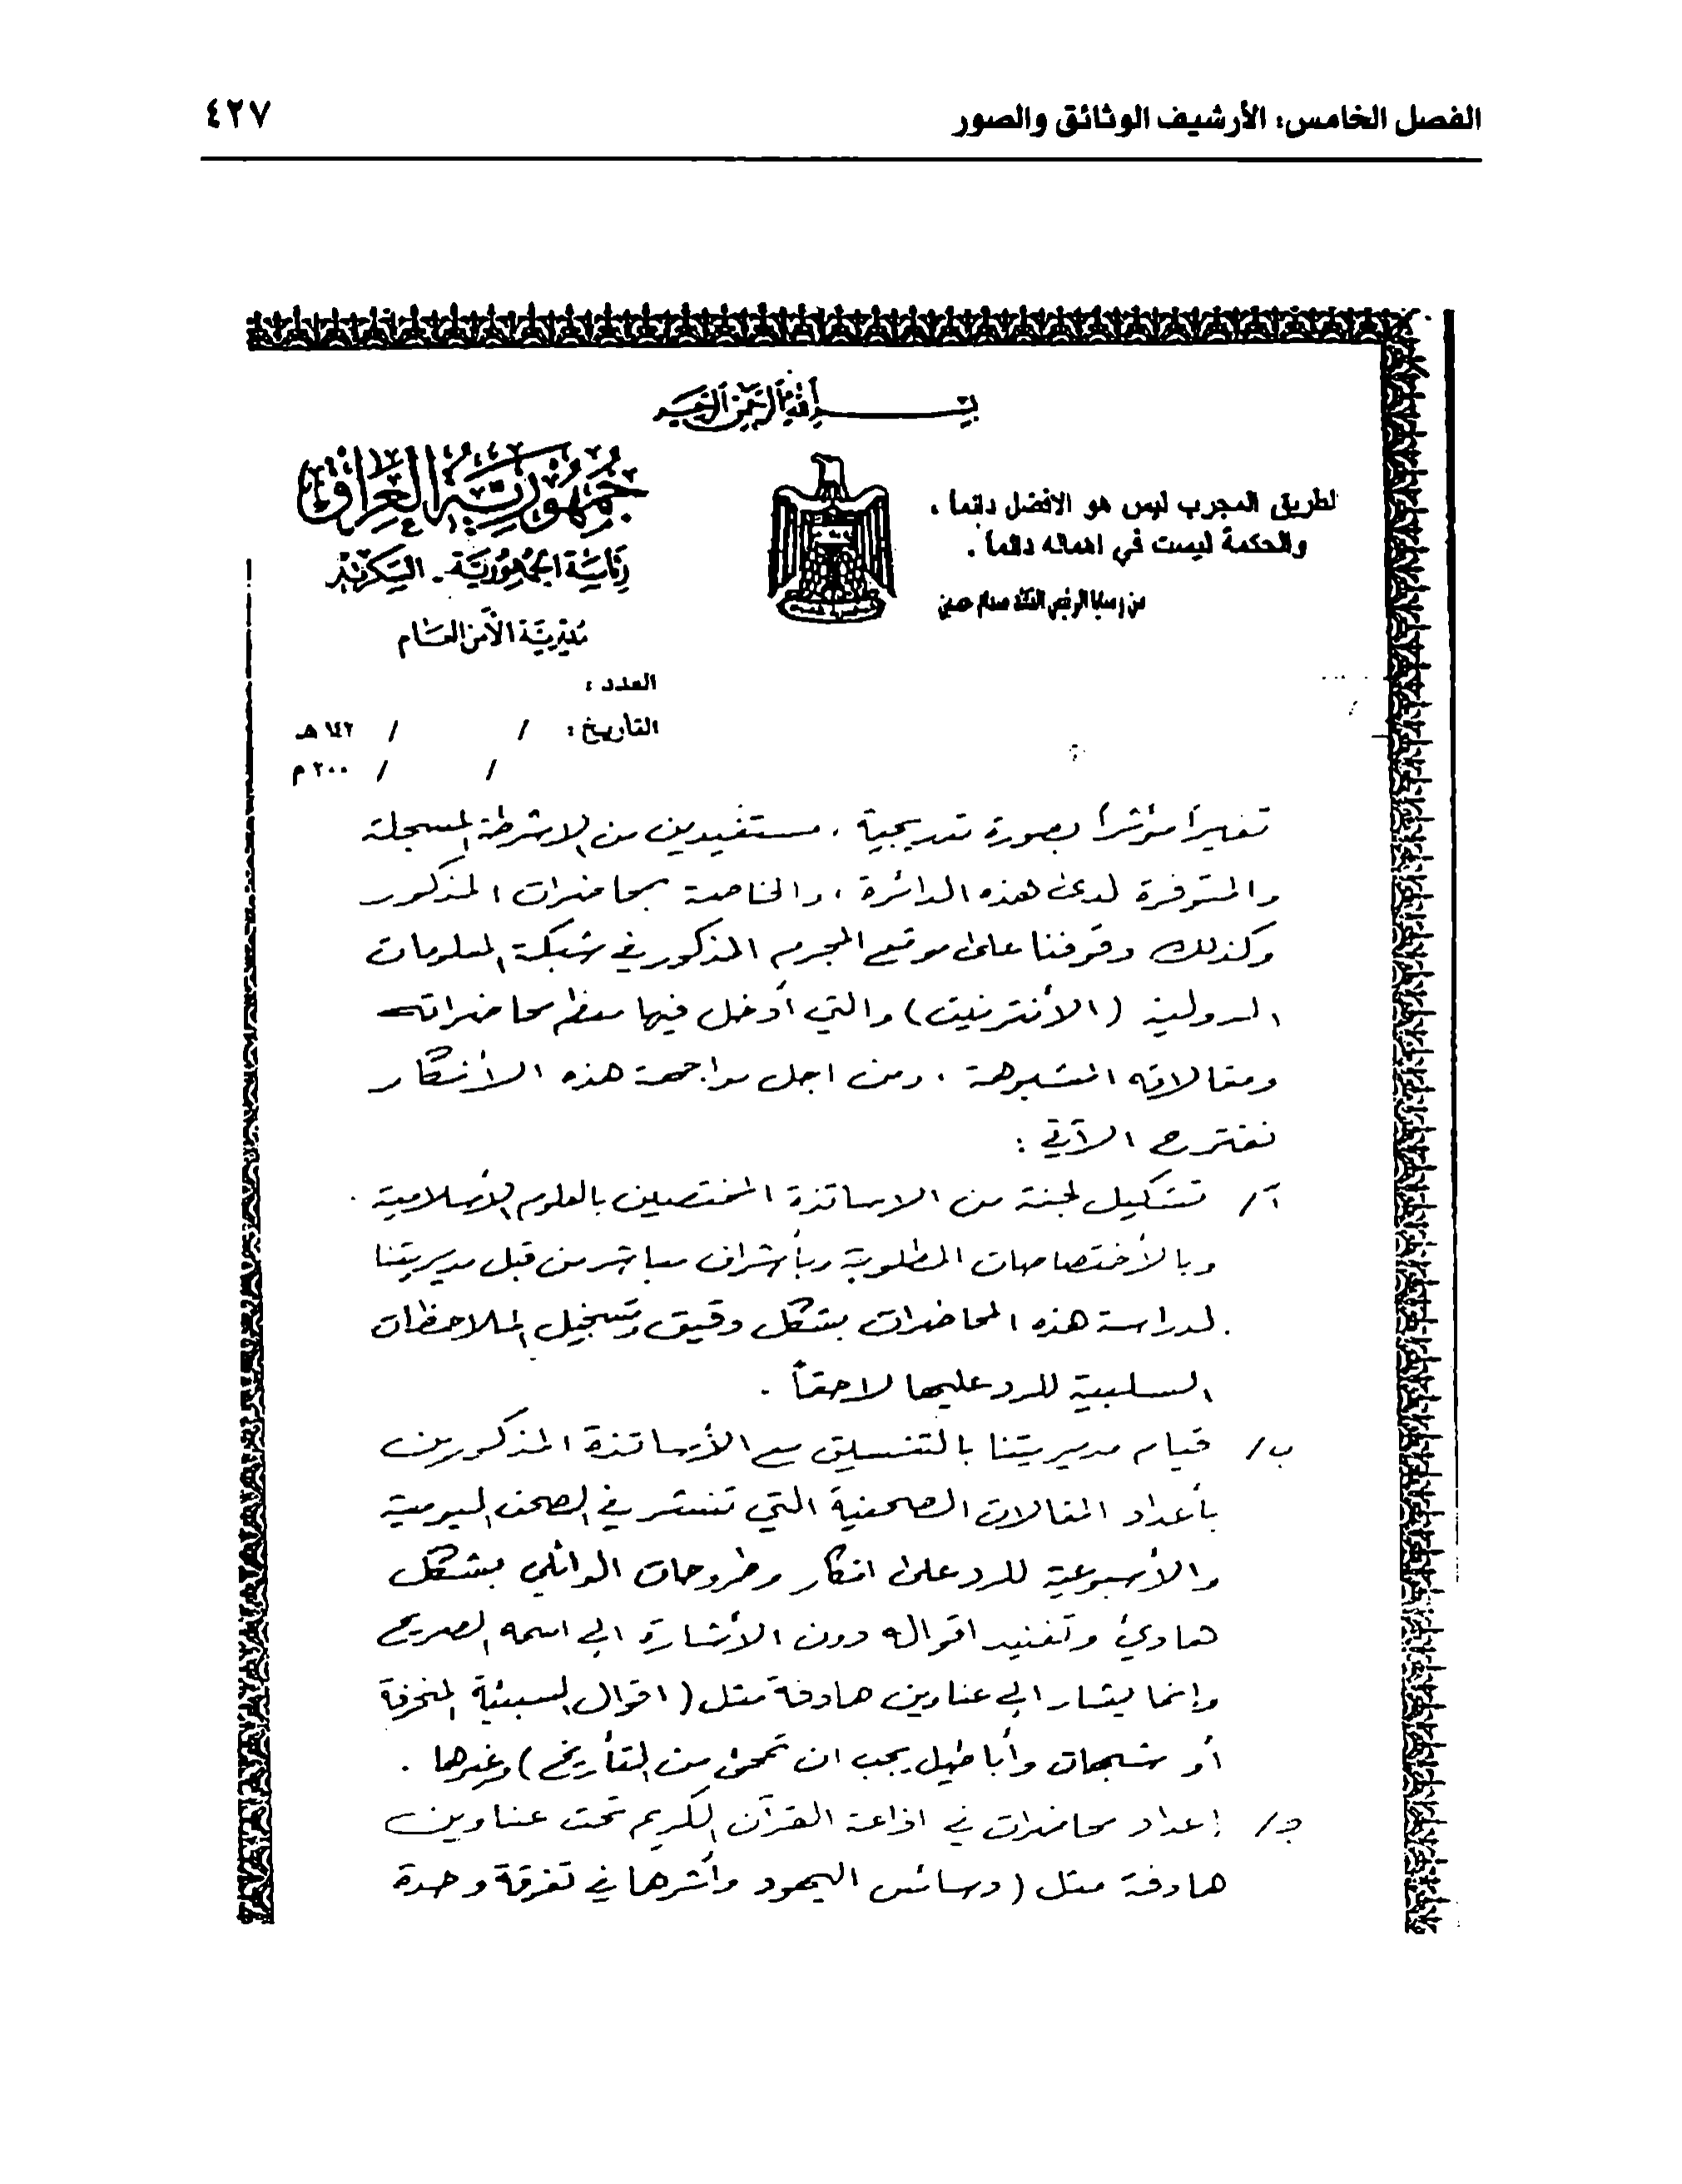 الفصل الخامس: الأرشيف الوثائق والصور
٤٢٧
بسم الله الرحمن الرحيم
جمهورية العراق
رئاسة الجمهورية - السكرتير
مديرية الأمن العام
لطريق المجرب ليس هو الافضل دائماً ،
والحكمة ليست في اهماله دائماً .
من وصايا الرئيس القائد صدام حسين
العدد :
التأريخ : / / ١٤٢ هـ
/ / ٢٠٠ م
تغييراً مؤثراً بصورة تدريجية ، مستفيدين من الاشرطة المسجلة
والمتوفرة لدى هذه الدائرة ، والخاصة بمحاضرات المذكور
وكذلك وقوفنا على موقع المجرم المذكور في شبكة المعلومات
الدولية (الأنترنيت) والتي أدخل فيها معظم محاضراته
ومقالاته المشبوهة ، ومن اجل مواجهة هذه الأفكار
نقترح الآتي :
أ/ تشكيل لجنة من الاساتذة المختصين بالعلوم الأسلامية
وبالأختصاصات المطلوبة وبأشراف مباشر من قبل مديريتنا
لدراسة هذه المحاضرات بشكل دقيق وتسجيل الملاحظات
السلبية للرد عليها لاحقاً .
ب/ قيام مديريتنا بالتنسيق مع الأساتذة المذكورين
بأعداد المقالات الصحفية التي تنشر في الصحف اليومية
والأسبوعية للرد على افكار وطروحات الوائلي بشكل
هادئ وتفنيد اقواله دون الأشارة الى اسمه الصريح
وانما يشار الى عناوين هادفة مثل ( اقوال السبئية المنحرفة
أو شبهات وأباطيل يجب ان تمحى من التأريخ ) وغيرها .
ج/ إعداد محاضرات في اذاعة القرآن الكريم تحت عناوين
هادفة مثل ( دسائس اليهود وأثرها في تفرقة وحدة